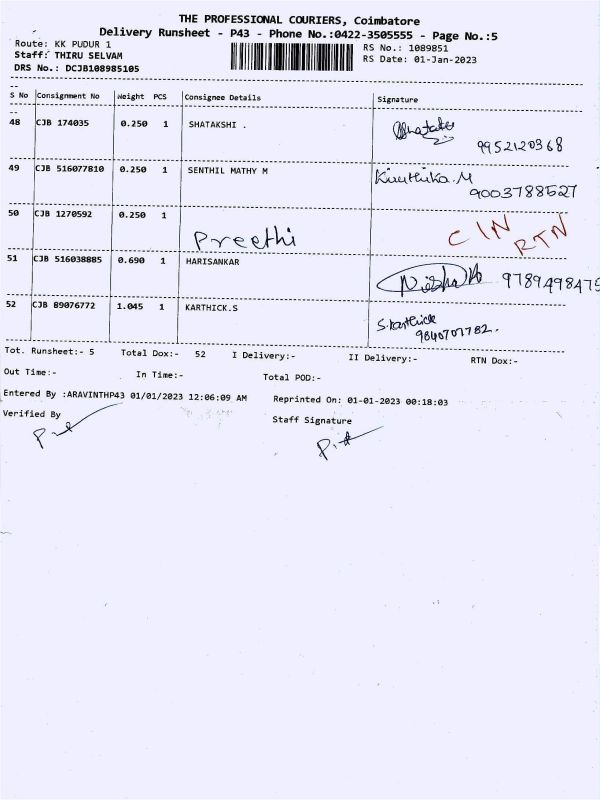 THE PROFESSIONAL COURIERS, Coimbatore
Delivery Runsheet - P43 - Phone No.:0422-3505555 - Page No.:5
Route: KK PUDUR 1 RS No.: 1089851
Staff: THIRU SELVAM RS Date: 01-Jan-2023
DRS No.: DCJB108985105
S No Consignment No Weight PCS Consignee Details Signature
48 CJB 174035 0.250 1 SHATAKSHI . 9952120368
49 CJB 516077810 0.250 1 SENTHIL MATHY M Kiruthika.M
9003788527
50 CJB 1270592 0.250 1 Preethi CIN RTN
51 CJB 516038885 0.690 1 HARISANKAR 978949847
52 CJB 89076772 1.045 1 KARTHICK.S S.Karthick
9840707782.
Tot. Runsheet:- 5 Total Dox:- 52 I Delivery:- II Delivery:- RTN Dox:-
Out Time:- In Time:- Total POD:-
Entered By :ARAVINTHP43 01/01/2023 12:06:09 AM Reprinted On: 01-01-2023 00:18:03
Verified By Staff Signature